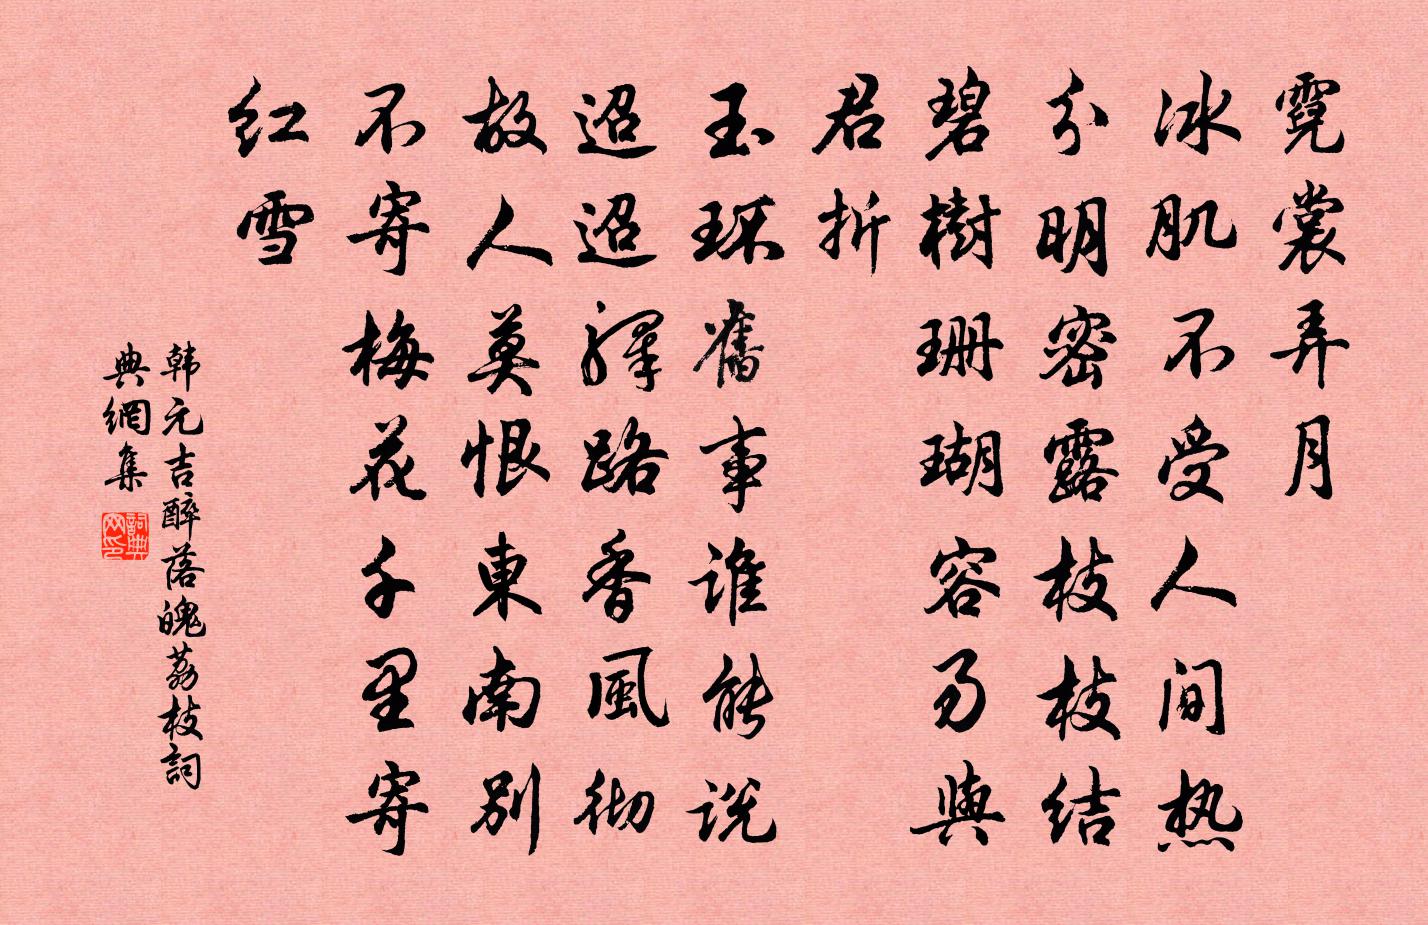 霓裳弄月
冰肌不受人间热
分明密露枝枝结
碧樹珊瑚容易與
君折
玉环舊事谁能说
迢迢驛路香風彻
故人莫恨東南别
不寄梅花千里寄
红雪
韩元吉醉落魄荔枝詞
典網集
詞典网印